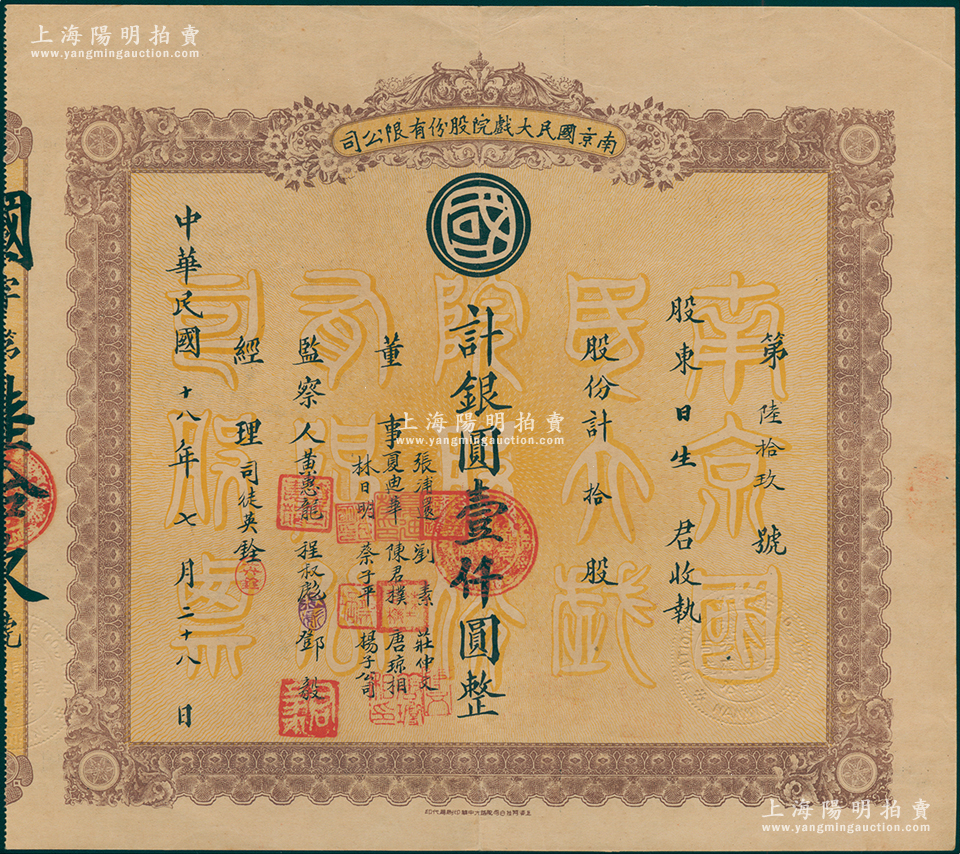 上海陽明拍賣
www.yangmingauction.com
南京國民大戲院股份有限公司
國
第陸拾玖號
股東日生君收執
股份計拾股
計銀圓壹仟圓整
董事
張浦
劉素
莊仲文
夏迪華
陳君樸
唐琼相
林日明
蔡子平
楊子公司
監察人
黃惠龍
程叔彪
鄧毅
經理
司徒英銓
中華民國十八年七月二十八日
國字第
號
南京國民大戲院股份有限公司股票
上海陽明拍賣
www.yangmingauction.com
上海陽明拍賣
www.yangmingauction.com